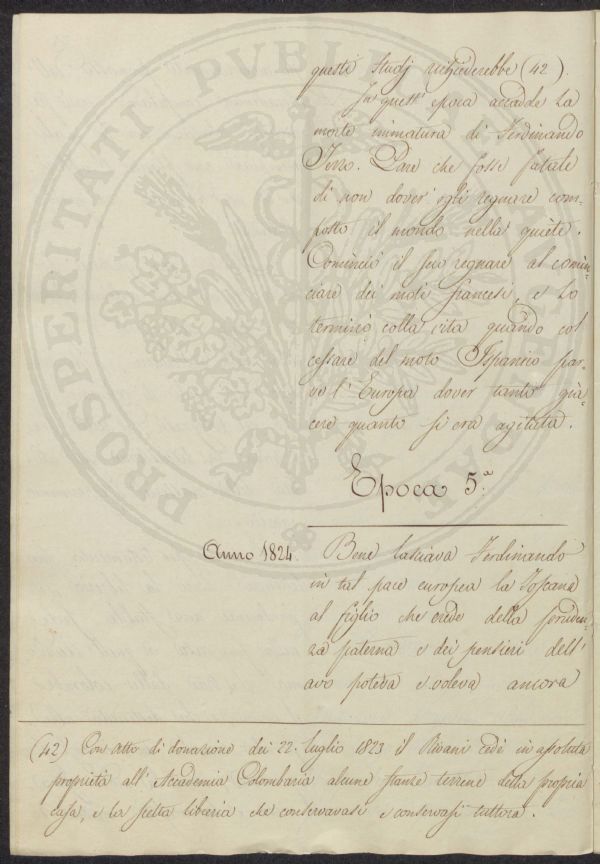 questi studj richiederebbe (42).
In quest' epoca accadde la
morte immatura di Ferdinando
Terzo. Pare che fosse fatale
di non dover egli regnare com-
posto il mondo nella quiete.
Cominciò il suo regnare al comin-
ciare dei moti francesi, e lo
terminò colla vita quando col
cessare del moto Ispanico par-
ve l' Europa dover tanto gia-
cere quanto si era agitata.
Epoca 5.a
Anno 1824. Bene lasciava Ferdinando
in tal pace europea la Toscana
al figlio che erede della pruden-
za paterna e dei pensieri dell'
avo poteva e voleva ancora
(42) Con atto di donazione dei 22. luglio 1823 il Rivani cedè in assoluta
proprietà all' Accademia Colombaria alcune stanze terrene della propria
casa, e la scelta libreria che conservavasi e conservasi tuttora.
PROSPERITATI PUBLICAE